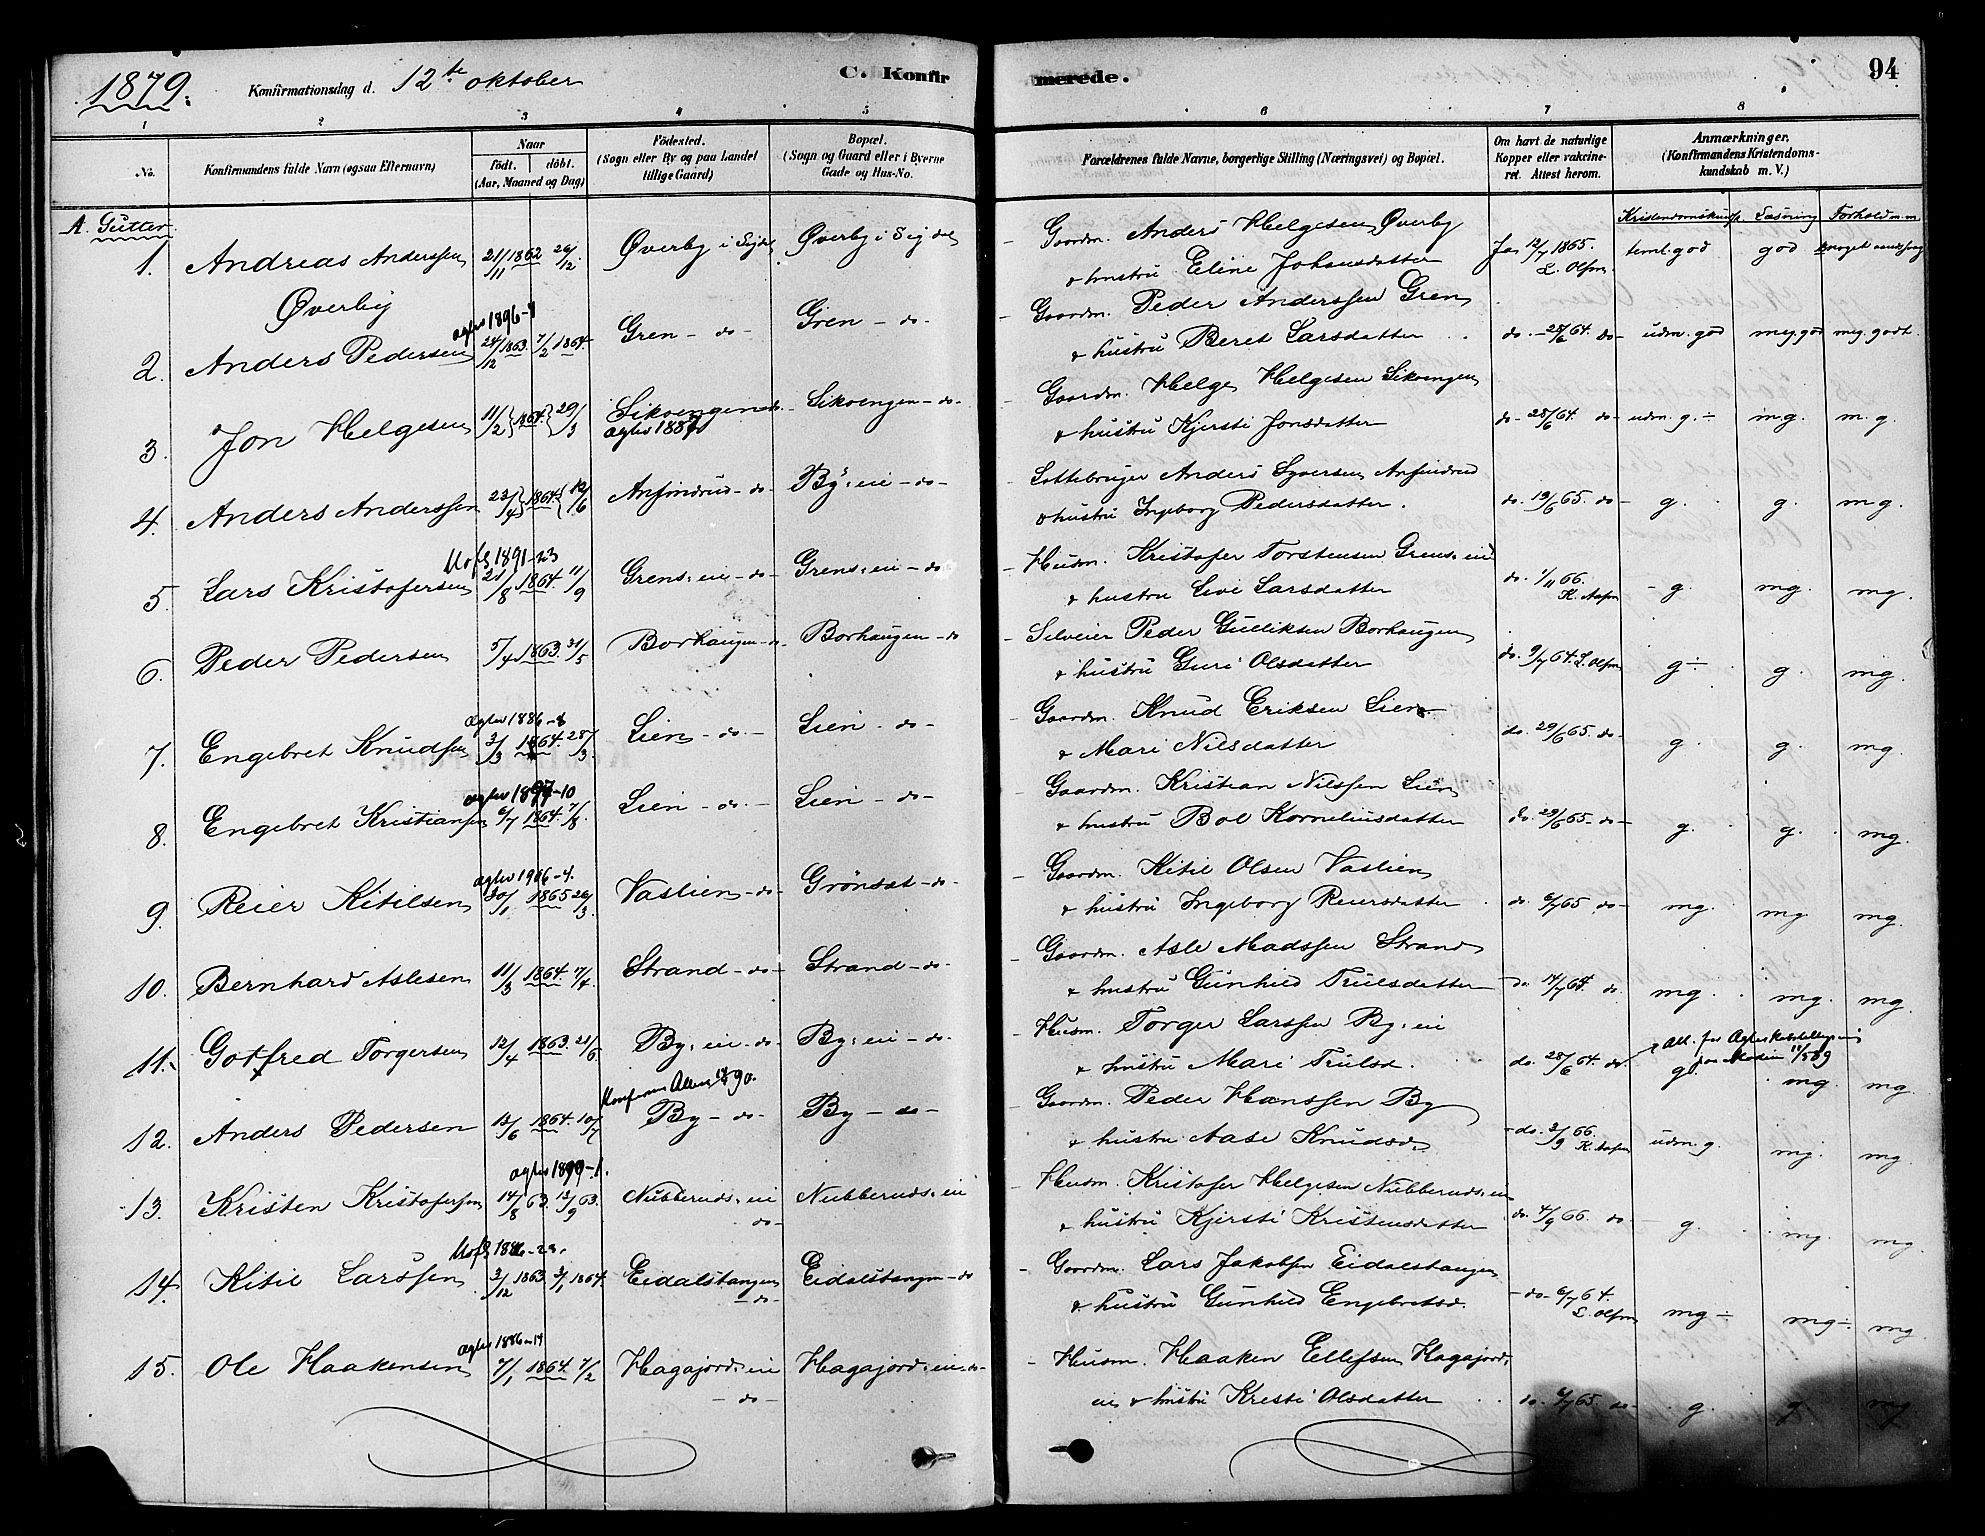 1879. Konfirmationsdag d. 12te oktober C. Konfirmerede. 94
1 2 3 4 5 6 7 8
No. Konfirmandens fulde Navn (ogsaa Efternavn) Naar født. døbt. (Aar, Maaned og Dag) Fødested. (Sogn eller By og paa Landet tillige Gaard) Bopæl. (Sogn og Gaard eller i Byerne Gade og Hus-No. Forældrenes fulde Navne, borgerlige Stilling (Næringsvei) og Bopæl. Om havt de naturlige Kopper eller vakcineret. Attest herom. Anmærkninger. (Konfirmandens Kristendomskundskab m. V.)
A. Gutter. Kristendomskunsk. Læsning Forhold m.m
1. Andreas Anderssen Øverby 21/11 1862 26/12. Øverby i Sigdal Øverby i Sigdal Gaardm. Anders Helgesen Øverby
& hustru Eline Johansdatter Ja 12/7 1865. L. Olsen teml. god god
2. Anders Pedersen 24/12 1863. 7/2 1864. Gren - do - Gren - do - Gaardm. Peder Anderssen Gren
& hustru Beret Larsdatter do - 28/6 64. do - udm. god meg. god meg. godt.
agtev 1896-4
3. Jon Helgesen 11/2 1864. 29/3 Sikvengen do - Sikvengen - do - Gaardm. Helge Helgesen Sikvengen
agtev 1887
& hustru Kjersti Jonsdatter do - 28/6 64. do - udm. g. ÷ mg. m. g.
4. Anders Anderssen 23/4 1864. 12/6 Anfindrud - do - By's eie - do - Anders Syversen Anfindrud
& hustru Ingeborg Pedersdatter. do. 19/6 65. do - g. g. mg.
5. Lars Kristofersen 21/8 1864. 11/9 Grens: eie - do - Grens: eie - do Husm. Kristofer Torstensen Grens: eie
1891-23
& hustru Livi Larsdatter do. 1/11 66. - g. mg. mg.
6. Peder Pedersen 5/4 1863. 31/5 Borhaugen - do Borhaugen - do Selveier Peder Gulliksen Borhaugen
& hustru Guri Olsdatter do. 9/7 64. L. Olsen g ÷ g. mg.
7. Engebret Knudsen 3/3 1864. 28/3. Lien - do. - Lien - do - Gaardm. Knud Eriksen Lien
agtev 1886-8
& Mari Nilsdatter do. 29/6 65. do - g. g. mg.
8. Engebret Kristiansen 6/7 1864. 7/8. Lien - do. - Lien - do - Gaardm. Kristian Nilssen Lien
agtev 1897-10
& hustru Bol Korneliusdatter do. 29/6 65 - do - g. g. mg.
9. Reier Kitilsen 30/1 1865 26/3. Vaslien - do - Grønset - do - Gaardm. Kitil Olsen Vaslien
agtev 1906-4.
& hustru Ingeborg Reiersdatter do. 6/7 65 do - mg. mg mg.
10. Bernhard Aslesen 11/3 1864. 7/4. Strand - do - Strand - do - Gaardm. Asle Madssen Strand
& hustru Gunhild Trulsdatter do. 14/7 64. do. mg. mg. mg.
11. Gotfred Torgersen 12/4 1863. 21/6 By: eie - do - By: eie - do - Husm. Torger Larssen By: eie
& hustru Mari Trulsd. do. 28/6 64. do. g. mg. mg.
12. Anders Pedersen 12/6 1864. 10/7 By - do - By - do - Gaardm. Peder Hanssen By
& hustru Aase Knudsd. - do. 3/9 66. udm. g. mg. mg.
13. Kristen Kristofersen 14/8 63. 13/9 63. Nubberuds: eie - do - Nubberuds: eie Husm. Kristofer Helgesen Nubberuds: eie
agtev 1899-1.
& hustru Kjersti Kristensdatter do. 4/9 66. do - g. mg. mg.
14. Kitil Larssen 3/12 1863 3/1 1864. Eidalstangen - do - Eidalstangen - do Gaardm. Lars Jakobsen Eidalstangen
& hustru Gunhild Engebretsd. - do - 6/7 64. L. Olsen mg ÷ mg ÷. mg.
15. Ole Haakensen 7/1 1864. 7/2 Hagajord: eie - do - Hagajord: eie - do - Husm. Haaken Ellefsen Hagajords:
agtev 1886-14
eie & hustru Kristi Olsdatter do. 6/7 65. do - g. g. mg.